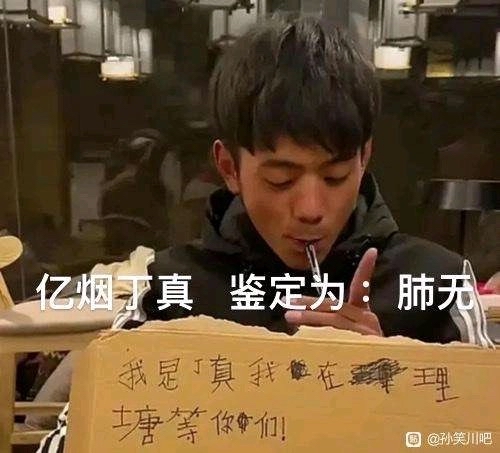 亿烟丁真 鉴定为：肺无
我是丁真我在理
塘等你们!
@孙笑川吧